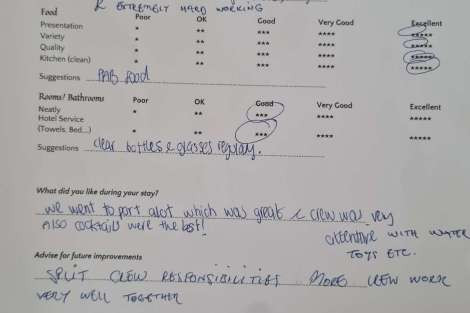 & EXTREMELY HARD WORKING
Food Poor OK Good Very Good Excellent
Presentation * ** *** **** *****
Variety * ** *** **** *****
Quality * ** *** **** *****
Kitchen (clean) * ** *** **** *****
Suggestions FAB food
Rooms/ Bathrooms Poor OK Good Very Good Excellent
Neatly * ** *** **** *****
Hotel Service
(Towels, Bed...) * ** *** **** *****
Suggestions clear bottles & glasses regulary.
What did you like during your stay?
we went to port alot which was great & crew was very
Also cocktails were the best!
attentive WITH WATER
TOYS ETC.
Advise for future improvements
SPLIT CREW RESPONSIBILITIES MORE CREW WORK
VERY WELL TOGETHER